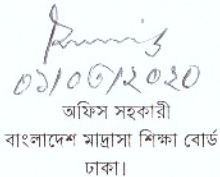 ০১/০৩/২০২০
অফিস সহকারী
বাংলাদেশ মাদ্রাসা শিক্ষা বোর্ড
ঢাকা।